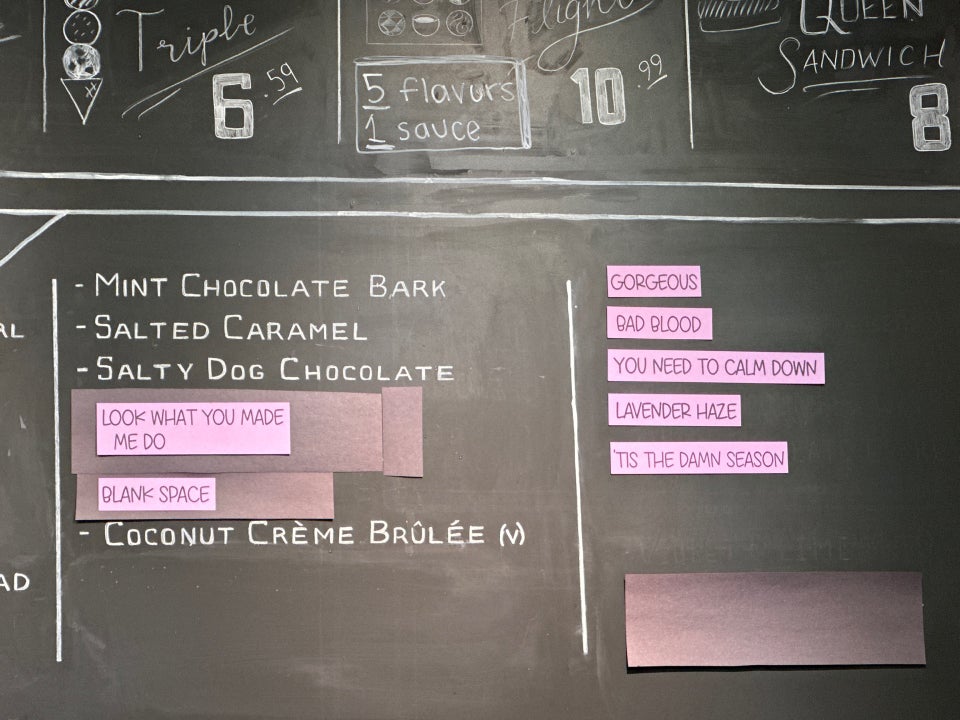 Triple
6.59
Flight
5 flavors
1 sauce
10.99
QUEEN
SANDWICH
8
AL
AD
- MINT CHOCOLATE BARK
- SALTED CARAMEL
- SALTY DOG CHOCOLATE
LOOK WHAT YOU MADE
ME DO
BLANK SPACE
- COCONUT CRÈME BRÛLÉE (V)
GORGEOUS
BAD BLOOD
YOU NEED TO CALM DOWN
LAVENDER HAZE
'TIS THE DAMN SEASON